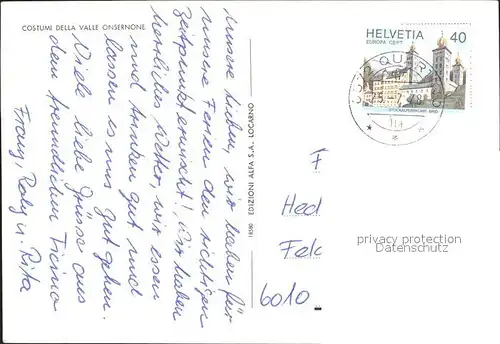 COSTUMI DELLA VALLE ONSERNONE
Unsere Lieben, wir haben für
unsere Ferien den richtigen
Zeitpunkt erwischt! Wir haben
herrliches Wetter, wir essen
und trinken gut und
lassen es uns gut gehen.
Viele liebe Grüsse aus
dem freundlichen Ticino
Franz, Roly u. Rita
11630 EDIZIONI ALFA S.A., LOCARNO
HELVETIA 40
EUROPA CEPT
STOCKALPERSCHLOSS BRIG
QUAR
F
Hed
Feld
6010
privacy protection
Datenschutz